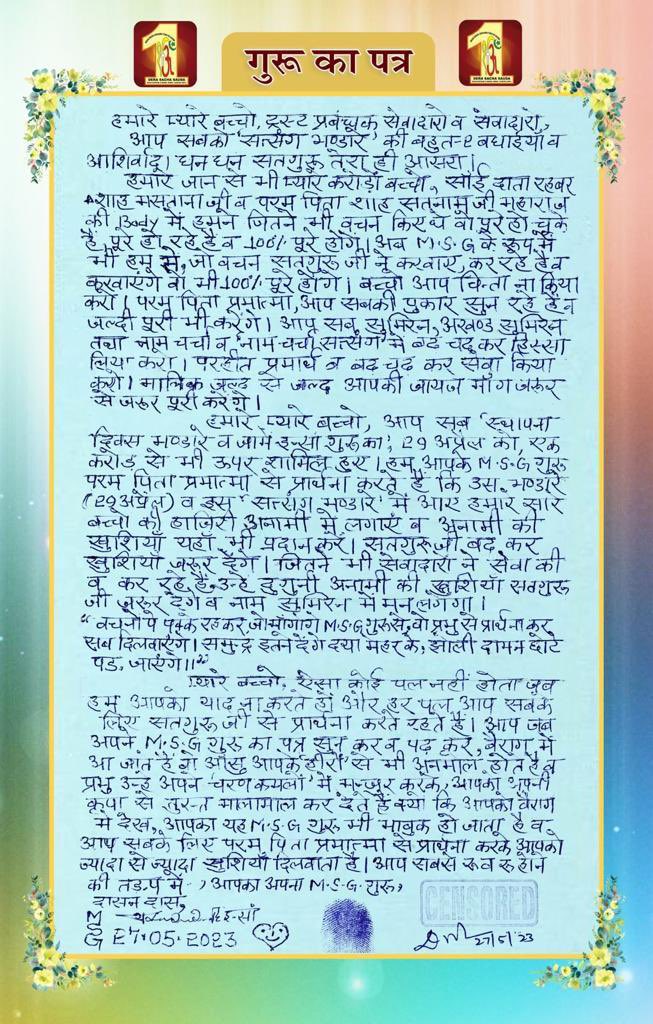 DERA SACHA SAUDA
DERA SACHA SAUDA
गुरू का पत्र
हमारे प्यारे बच्चो, ट्रस्ट प्रबंधक सेवादारो व सेवादारो,
आप सबको 'सत्संग भण्डारे' की बहुत-२ बधाईयाँ व
आशिर्वाद। धन धन सतगुरू तेरा ही आसरा।
हमारे जान से भी प्यारे करोड़ों बच्चो, साँई दाता रहबर
शाह मस्ताना जी व परम पिता शाह सतनाम जी महाराज
की Body में हमने जितने भी वचन किए थे वो पूरे हो चुके
है, पूरे हो रहे है व 100% पूरे होंगे। अब M.S.G के रूप में
भी हम से, जो बचन सतगुरू जी ने करवाए, कर रहे है व
करवाएंगे वो भी 100% पूरे होंगे। बच्चो आप चिन्ता ना किया
करो। परम पिता प्रमात्मा, आप सबकी पुकार सुन रहे है व
जल्दी पूरी भी करेंगे। आप सब सुमिरन, अखण्ड सुमिरन
तथा नाम चर्चा व 'नाम चर्चा सत्संग' में बढ़ चढ़ कर हिस्सा
लिया करो। परहीत प्रमार्थ व बढ़ चढ़ कर सेवा किया
करो। मालिक जल्द से जल्द आपकी जायज माँग जरूर
से जरूर पूरी करेंगे।
हमारे प्यारे बच्चो, आप सब 'स्थापना
दिवस भण्डारे व जामे इन्सां गुरू का', २९ अप्रैल को, एक
करोड़ से भी ऊपर शामिल हुए। हम आपके M.S.G गुरू
परम पिता प्रमात्मा से प्रार्थना करते है कि उस भण्डारे
(२९ अप्रैल) व इस 'सत्संग भण्डारे' में आए हमारे सारे
बच्चो की हाजिरी अनामी में लगाएं व अनामी की
खुशियाँ यहाँ भी प्रदान करें। सतगुरू जी बढ़ कर
खुशियाँ जरूर देंगे। जितने भी सेवादारो ने सेवा की
व कर रहे हैं, उन्हे दुगुनी अनामी की खुशियाँ सतगुरू
जी जरूर देंगे व नाम सुमिरन में मन लगेगा।
"वचनों पे पक्के रहकर, जो मांगोगे M.S.G गुरू से, वो प्रभु से प्रार्थना कर
सब दिलवाएंगे। समुन्द्र इतने देंगे दया मेहर के, झोली दामन छोटे
पड़ जाएंगे॥"
प्यारे बच्चो, ऐसा कोई पल नहीं होता जब
हम आपको याद ना करते हों और हर पल आप सबके
लिए सतगुरू जी से प्रार्थना करते रहते हैं। आप जब
अपने M.S.G गुरू का पत्र सुन कर व पढ़ कर, वैराग में
आ जाते है तो आंसु आपके हीरों से भी अनमोल होते है व
प्रभु उन्हे अपने 'चरण कमलों' में मन्जुर करके, आपको अपनी
कृपा से तुरन्त मालामाल कर देते है क्यों कि आपको वैराग
में देख, आपका यह M.S.G गुरू भी भावुक हो जाता है व
आप सबके लिए परम पिता प्रमात्मा से प्रार्थना करके आपको
ज्यादा से ज्यादा खुशियाँ दिलवाता है। आप सबसे रूबरू होने
की तड़प में -, आपका अपना M.S.G गुरू,
दासन दास,
M
S
G
इन्सां
27.05.2023
CENSORED